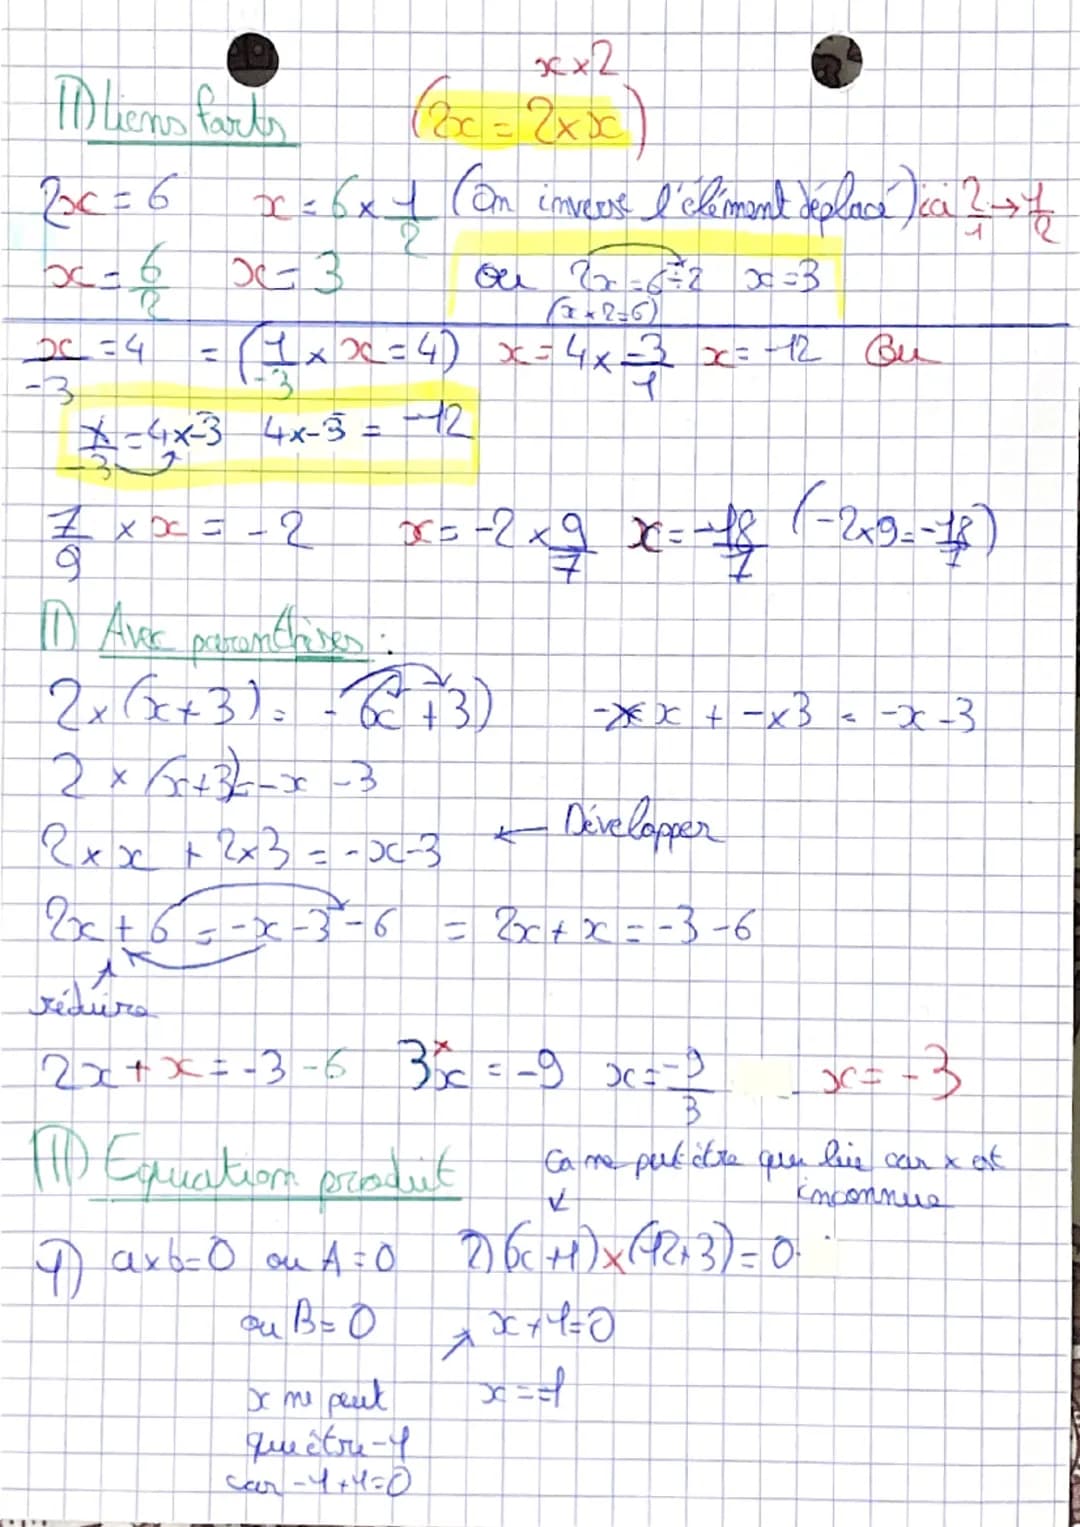 x×2
II) Liens forts (2x = 2×x)
2x = 6 x = 6 × 1/2 (On inverse l'élément déplacé) ici 2/1 → 1/2
x = 6/2 x = 3 ou 2x = 6÷2 x = 3
(x×2=6)
x/-3 = 4 = (1/-3 × x = 4) x = 4 × -3/1 x = -12 Ou
x/-3 = 4×-3 4×-3 = -12
7/9 × x = -2 x = -2 × 9/7 x = -18/7 (-2×9 = -18/7)
II) Avec paranthèses :
2×(x+3) = -(x+3) -×x + -×3 = -x-3
2×(x+3) = -x -3
2×x + 2×3 = -x-3 ← Développer
2x + 6 = -x -3 -6 = 2x + x = -3 -6
réduire
2x + x = -3 -6 3×x = -9 x = -9/3 x = -3
III) Equation produit Ca ne peut être que lui car x est
inconnue
1) a×b=0 ou A=0 2) (x+1)×(12+3)=0
ou B=0 x+1=0
x ne peut x=-1
qu'être -1
car -1+1=0